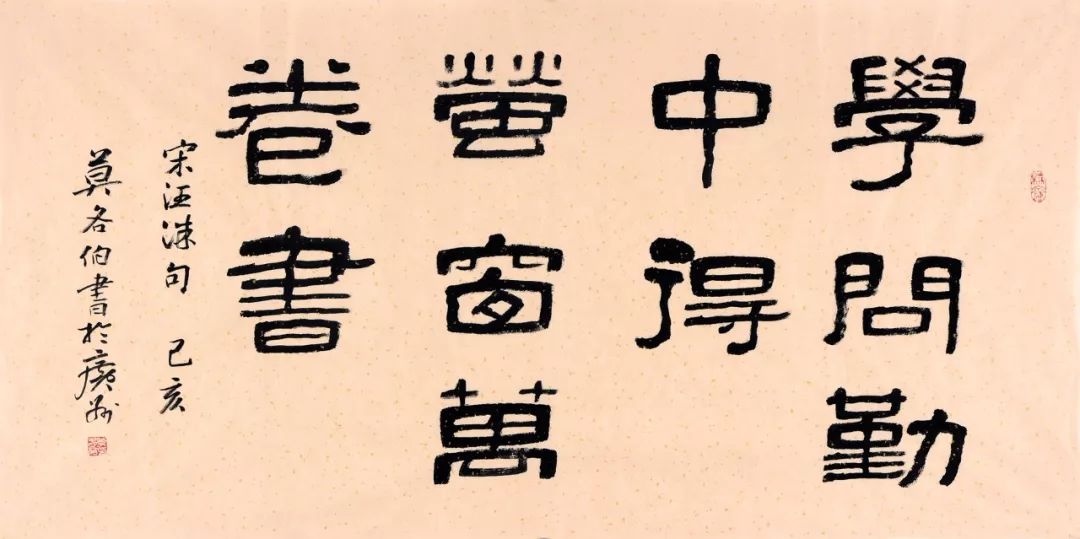 學問勤
中得
螢窗萬
卷書
宋汪洙句 己亥
莫各伯書於廣州